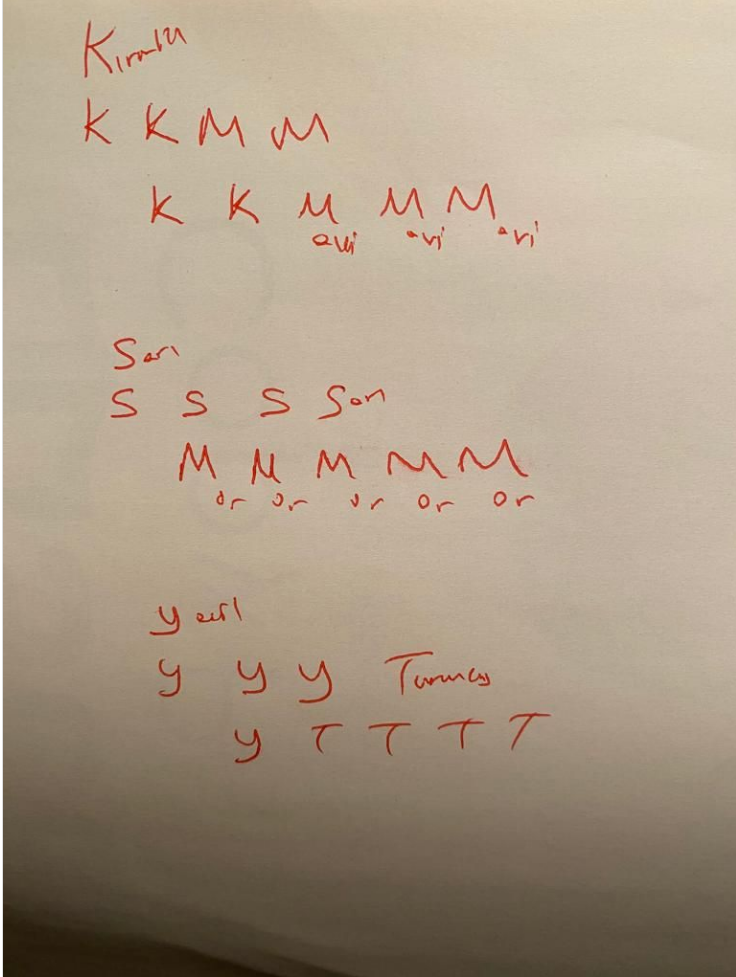 Kırmızı
K K M M
K K M M M
avi avi avi
Sarı
S S S Sarı
M M M M M
or or or or or
Yeşil
y y y Turuncu
y T T T T